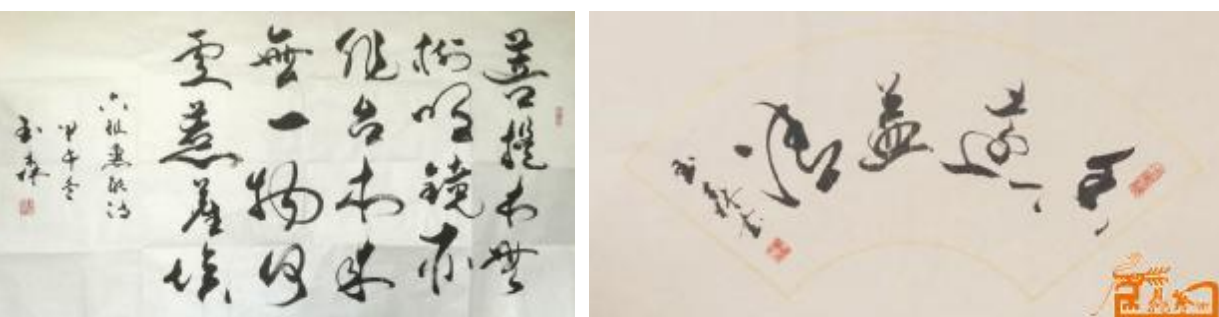 菩提本無
樹明鏡亦
非台本来
無一物何
處惹塵埃
六祖惠能詩
甲午冬
玉森
香遠益清